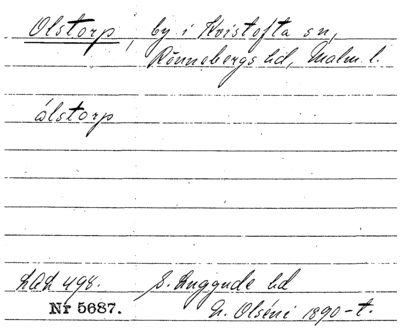 Olstorp, by i Kvistofta sn,
Rönnebergs hd, Malm. l.
ólstorp
LAL 498. S. Luggude hd
Nr 5687. N. Olséni 1890-t.